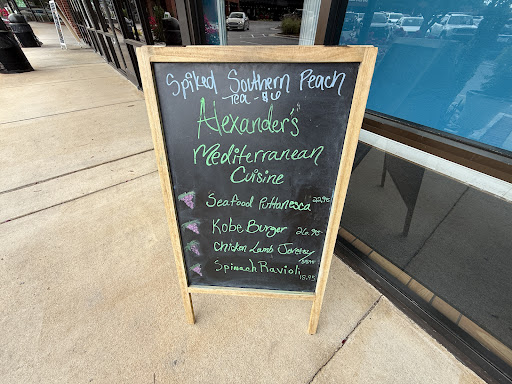 Spiked Southern Peach
Tea - $6
Alexander's
Mediterranean
Cuisine
Seafood Puttanesca 22.95
Kobe Burger 26.95
Chicken Lamb
Spinach Ravioli
18.95